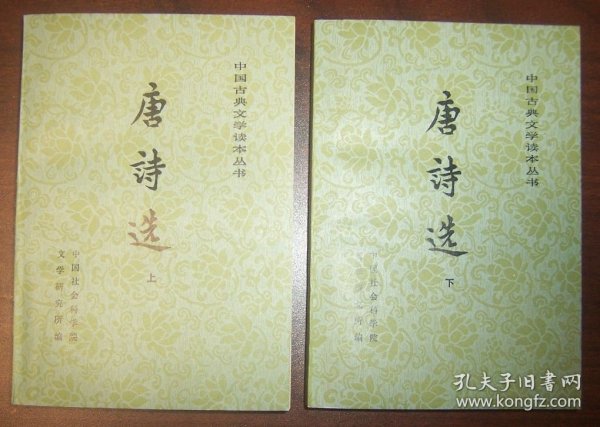 中国古典文学读本丛书
唐詩选
上
中国社会科学院
文学研究所编
中国古典文学读本丛书
唐詩选
下
中国社会科学院
究所编
孔夫子旧书网
www.kongfz.com